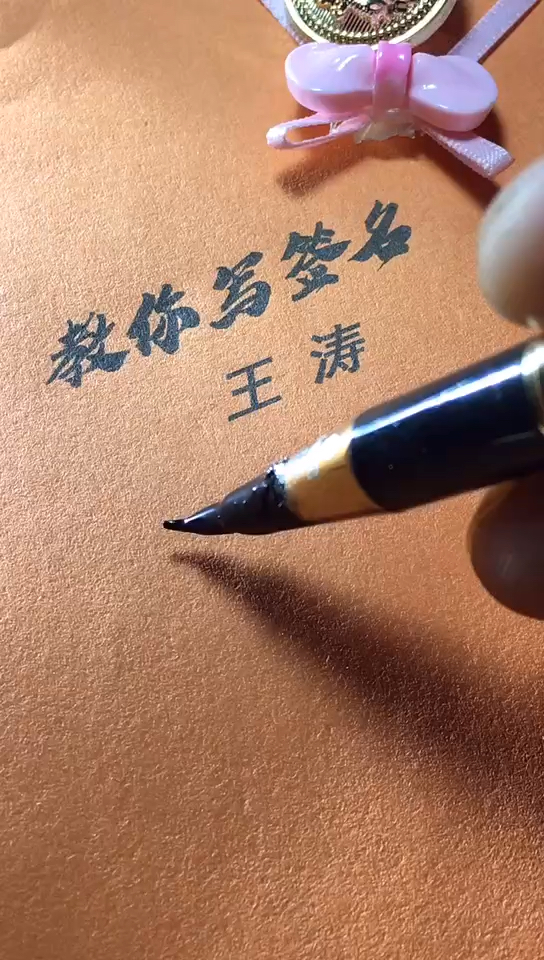 教你写签名
王涛